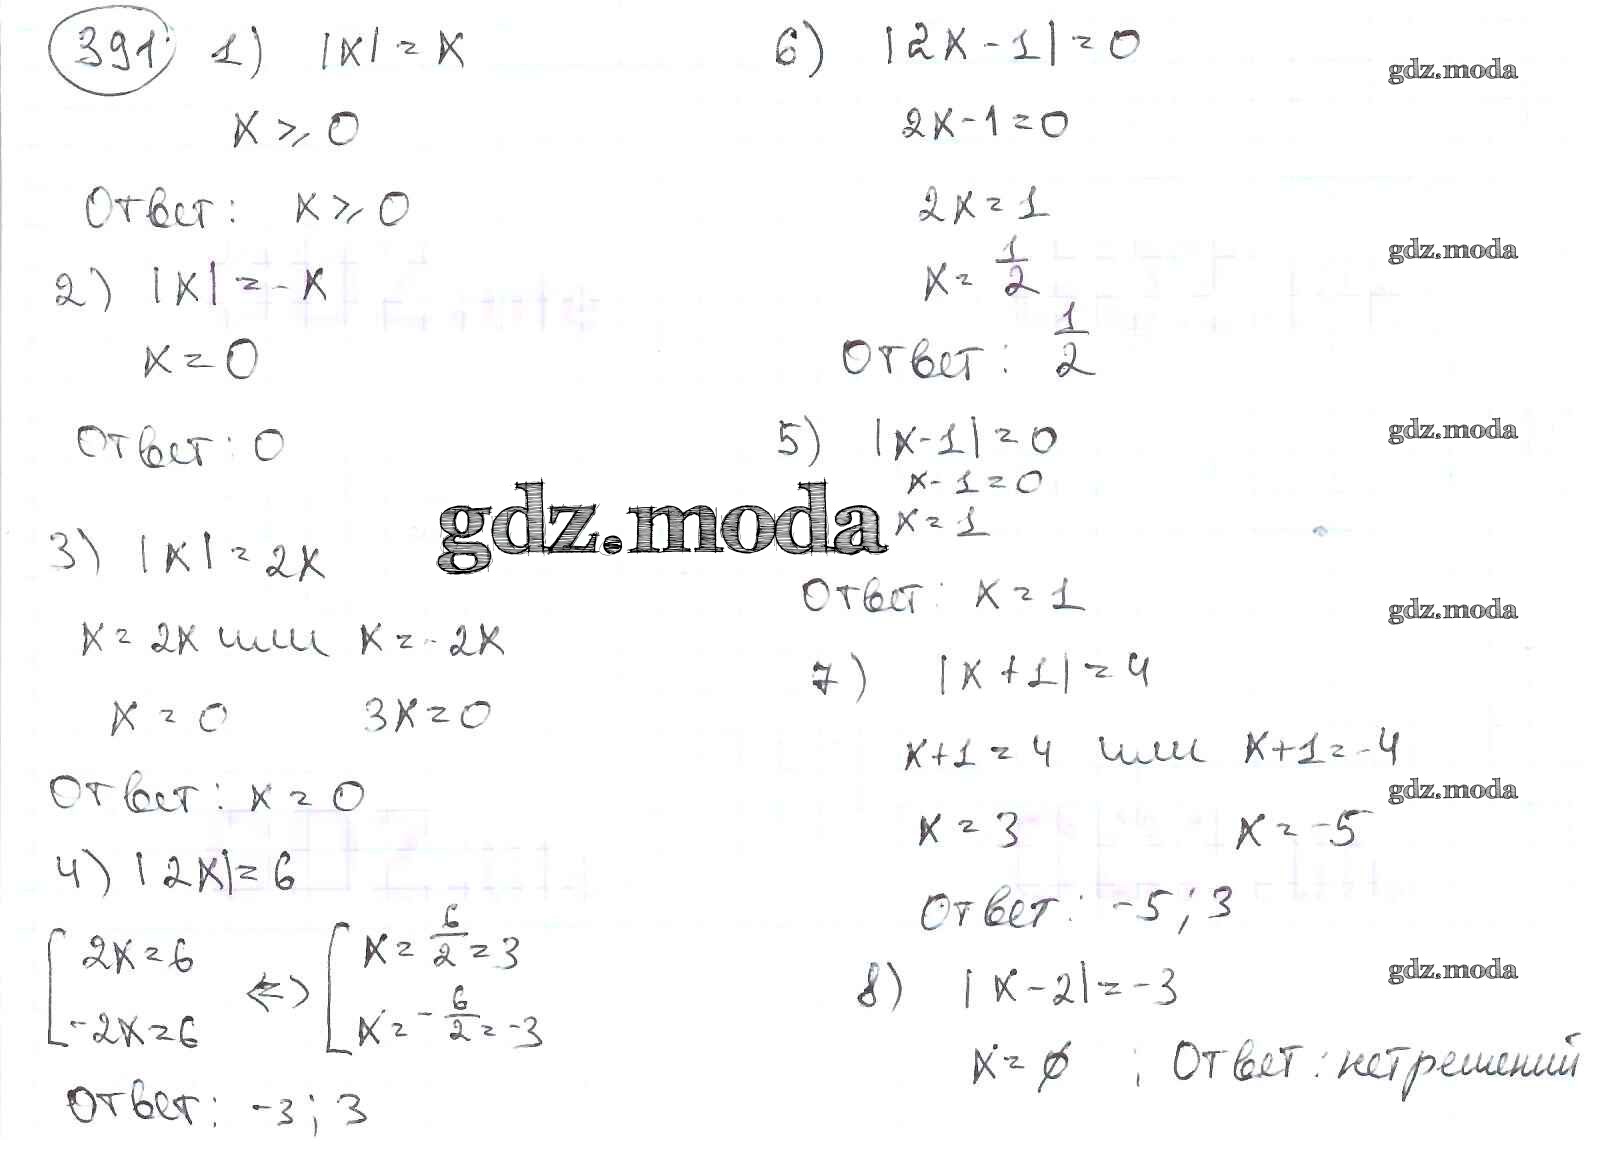 391. 1) |x| = x
x ⩾ 0
Ответ: x ⩾ 0
2) |x| = -x
x = 0
Ответ: 0
3) |x| = 2x
x = 2x или x = -2x
x = 0 3x = 0
Ответ: x = 0
4) |2x| = 6
[ 2x = 6 <=> [ x = 6/2 = 3
-2x = 6 x = -6/2 = -3
Ответ: -3; 3
6) |2x - 1| = 0
2x - 1 = 0
2x = 1
x = 1/2
Ответ: 1/2
5) |x - 1| = 0
x - 1 = 0
x = 1
Ответ: x = 1
7) |x + 1| = 4
x + 1 = 4 или x + 1 = -4
x = 3 x = -5
Ответ: -5; 3
8) |x - 2| = -3
x = ∅ ; Ответ: нет решений
gdz.moda
gdz.moda
gdz.moda
gdz.moda
gdz.moda
gdz.moda
gdz.moda